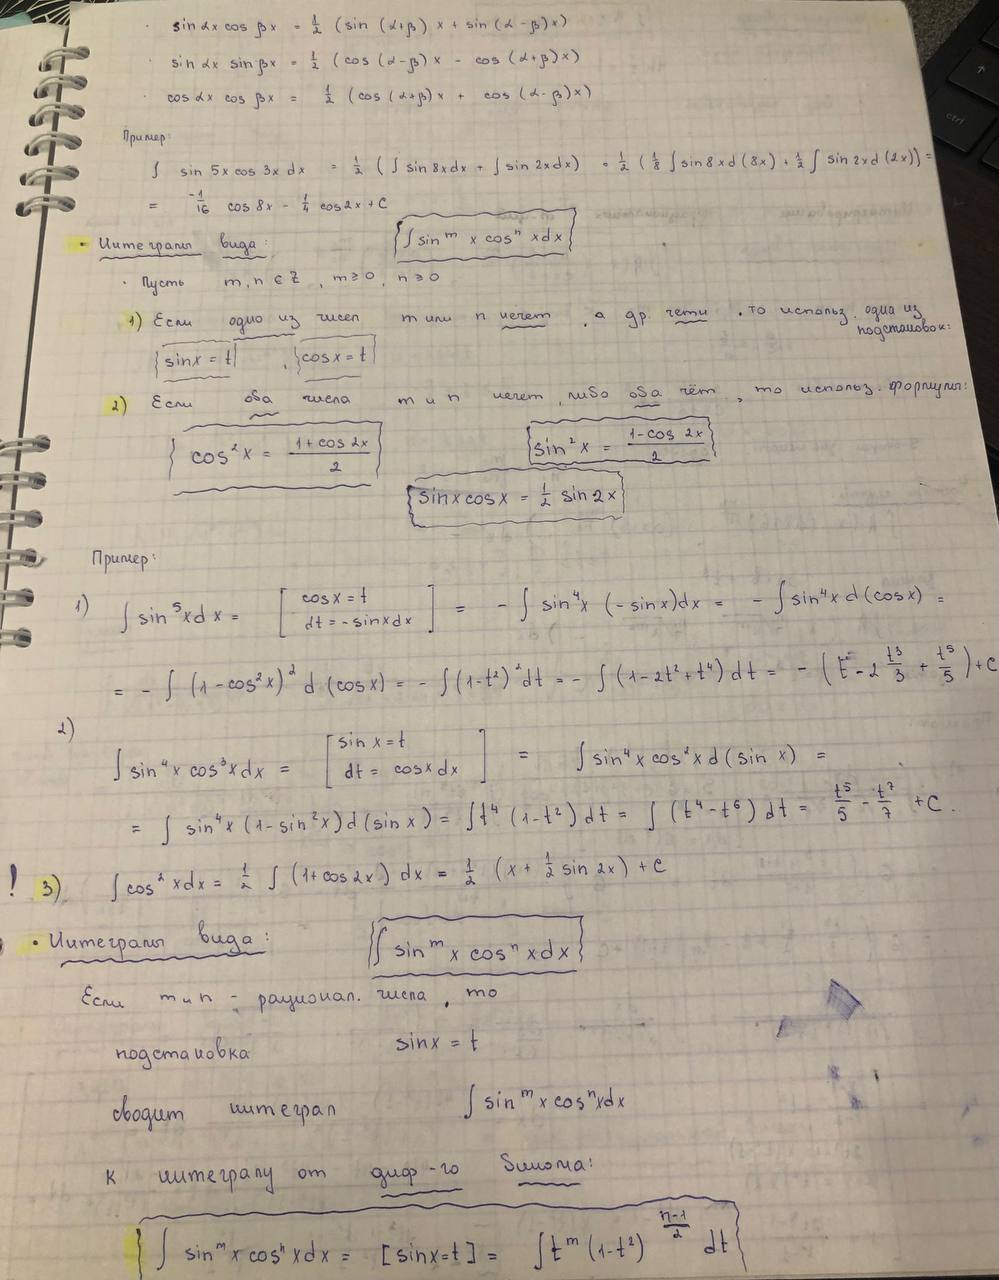 · sin αx cos βx = 1/2 (sin (α+β) x + sin (α-β)x)
· sin αx sin βx = 1/2 (cos (α-β)x - cos (α+β)x)
· cos αx cos βx = 1/2 (cos (α+β)x + cos (α-β)x)
Пример:
∫ sin 5x cos 3x dx = 1/2 (∫ sin 8x dx + ∫ sin 2x dx) = 1/2 (1/8 ∫ sin 8x d(8x) + 1/2 ∫ sin 2x d(2x)) =
= -1/16 cos 8x - 1/4 cos 2x + C
• Интегралы вида: ∫ sin^m x cos^n x dx
· Пусть m, n ∈ Z, m ≥ 0, n ≥ 0
1) Если одно из чисел m или n нечет, а др. четн, то использ. одна из подстановок:
sin x = t, cos x = t
2) Если оба числа m и n нечет, либо оба чёт, то использ. формулы:
cos^2 x = (1+cos 2x)/2 sin^2 x = (1-cos 2x)/2
sin x cos x = 1/2 sin 2x
Пример:
1) ∫ sin^5 x dx = [cos x = t dt = -sin x dx] = - ∫ sin^4 x (-sin x) dx = - ∫ sin^4 x d(cos x) =
= - ∫ (1-cos^2 x)^2 d(cos x) = - ∫ (1-t^2)^2 dt = - ∫ (1-2t^2+t^4) dt = - (t - 2 t^3/3 + t^5/5) + C
2)
∫ sin^4 x cos^3 x dx = [sin x = t dt = cos x dx] = ∫ sin^4 x cos^2 x d(sin x) =
= ∫ sin^4 x (1-sin^2 x) d(sin x) = ∫ t^4 (1-t^2) dt = ∫ (t^4 - t^6) dt = t^5/5 - t^7/7 + C.
! 3) ∫ cos^2 x dx = 1/2 ∫ (1+cos 2x) dx = 1/2 (x + 1/2 sin 2x) + C
• Интегралы вида: ∫ sin^m x cos^n x dx
Если m и n - рационал. числа, то
подстановка sin x = t
сводит интеграл ∫ sin^m x cos^n x dx
к интегралу от диф-го бинома:
∫ sin^m x cos^n x dx = [sin x = t] = ∫ t^m (1-t^2)^((n-1)/2) dt